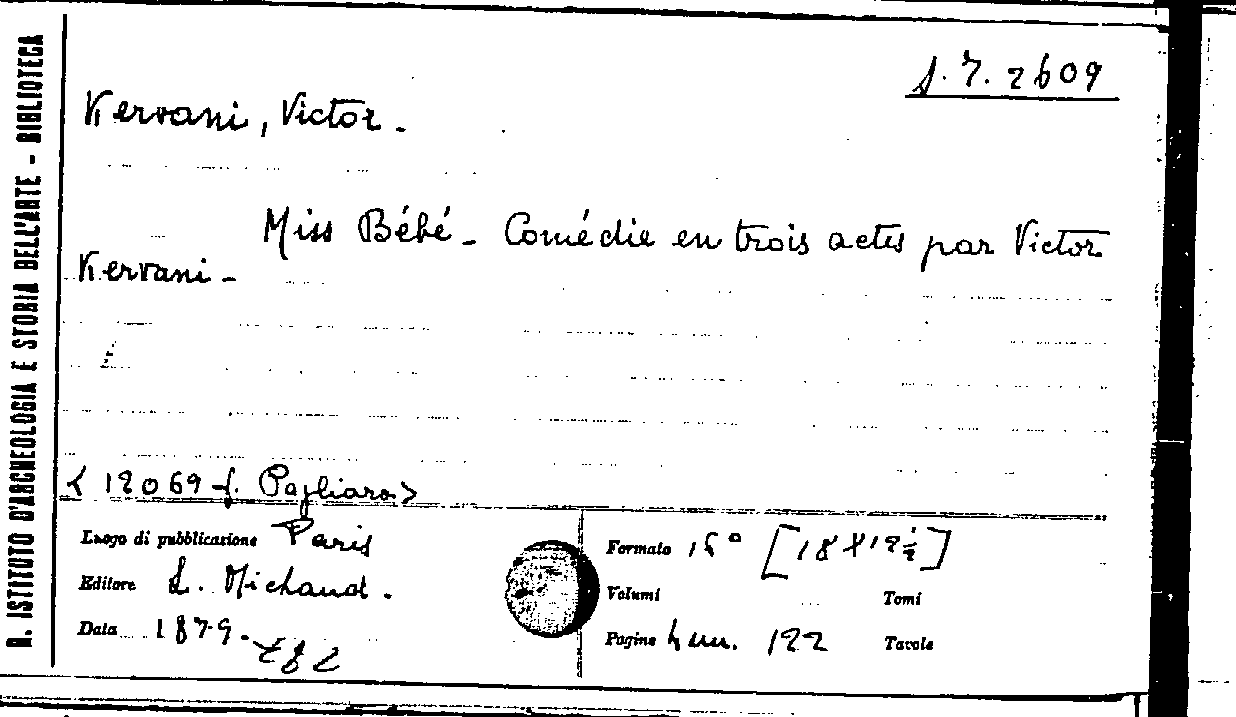 R. ISTITUTO D'ARCHEOLOGIA E STORIA DELL'ARTE - BIBLIOTECA
S. 7. 2609
Kervani, Victor.
Miss Bébé - Comédie en trois actes par Victor
Kervani -
< 12069 f. Pagliara>
Luogo di pubblicazione Paris
Editore L. Michaud.
Data 1879.
Formato 16° [18 X 12 ½]
Volumi Tomi
Pagine num. 122 Tavole